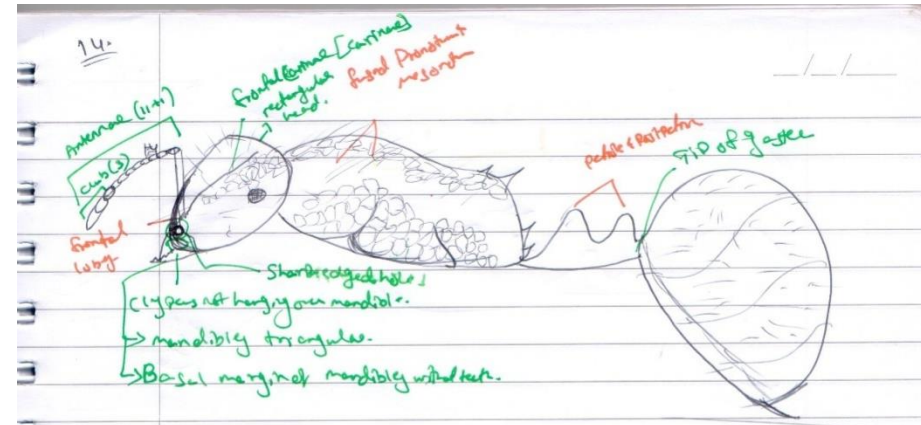 14.
Antennae (11+1)
club(3)
frontal carinae [carinae]
rectangular
head.
fused Pronotum +
mesonotum
Petiole & Postpetiole
Tip of gaster
frontal
lobes
Sharp edged holes
Clypeus not hanging over mandible.
→ mandibles triangular.
→ Basal margin of mandibles without teeth.